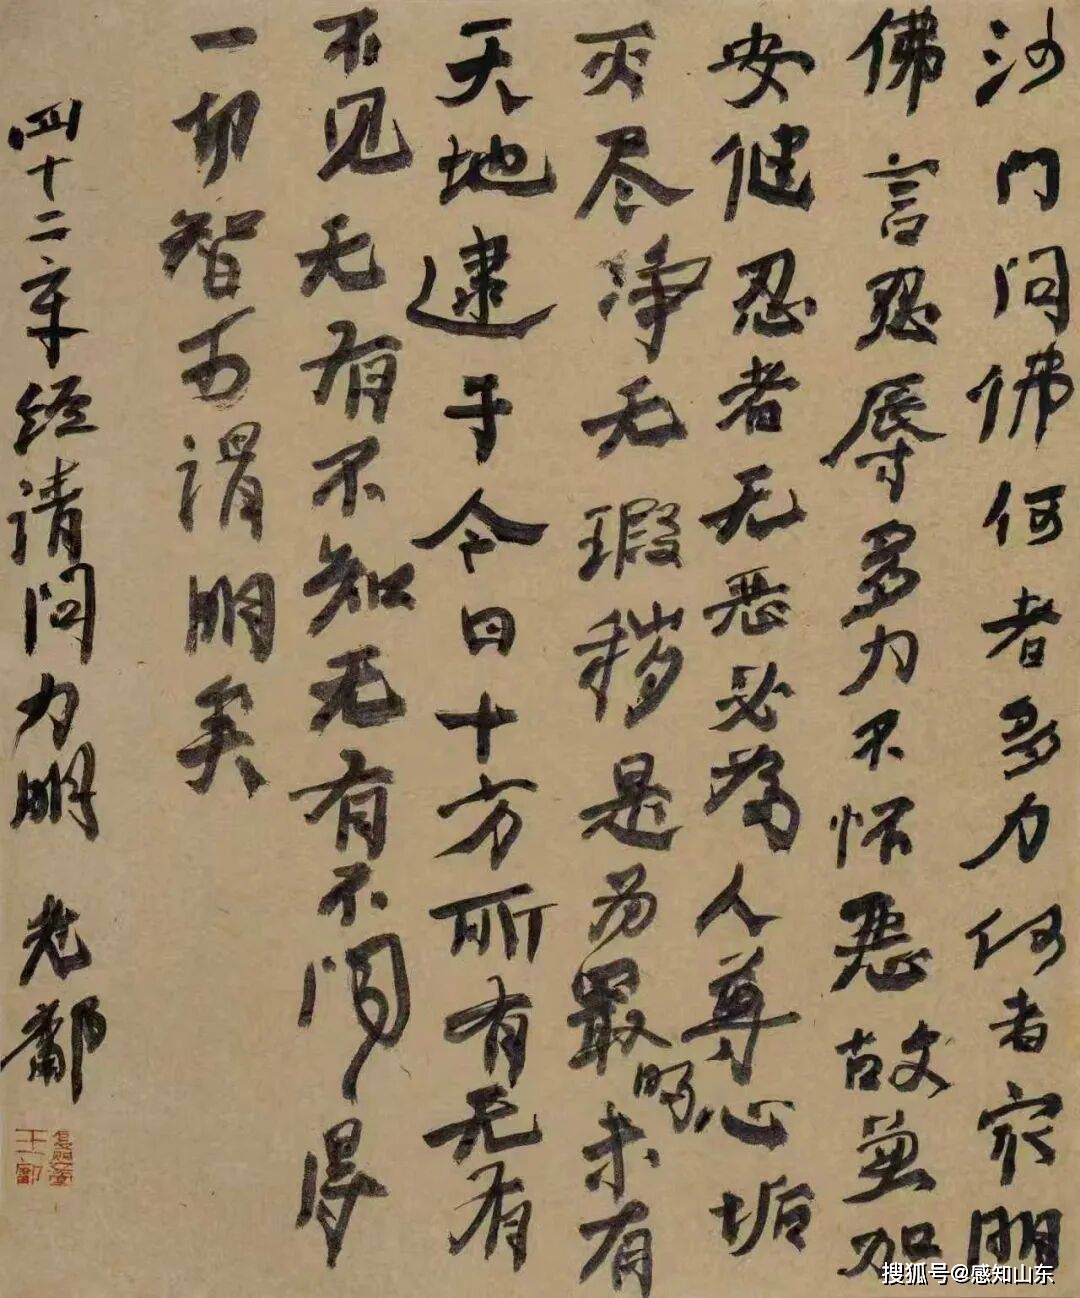 沙门问佛何者多力何者最明
佛言忍辱多力不怀恶故兼加
安健忍者无恶必为人尊心垢
灭尽净无瑕秽是为最明未有
天地逮于今日十方所有无有
不见无有不知无有不闻得
一切智可谓明矣
四十二章经请问力明 老鄘
搜狐号@感知山东